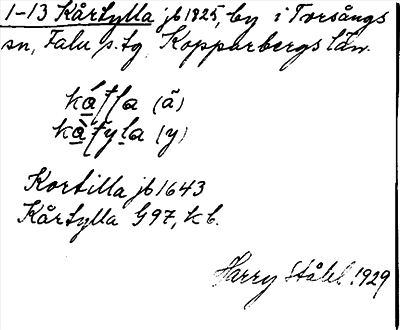 1-13 Kårtylla jb 1825, by i Torsångs
sn, Falu s. tg, Kopparbergs län.
(ä)
(y)
Kortilla jb 1643
Kårtylla G97, kb.
Harry Ståhl 1929